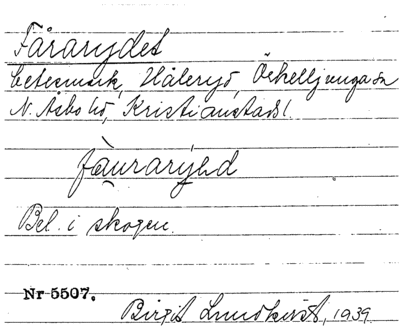 Fårarydet
betesmark, Håleryd, Örkelljunga sn
N. Åsbo hd, Kristianstads l.
fàuraryed
Bel. i skogen.
Nr 5507.
Birgit Lundkvist, 1939